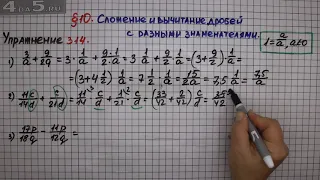 4 5.ru
§10. Сложение и вычитание дробей
с разными знаменателями.
1 = a/a, a≠0
Упражнение 314.
1) 3/a + 9/2a = 3 · 1/a + 9/2 · 1/a = 3 · 1/a + 9/2 · 1/a = (3 + 9/2) · 1/a =
= (3 + 4 1/2) · 1/a = 7 1/2 · 1/a = 15/2a = 7,5 · 1/a = 7,5/a
2) 11c/14d + c/21d = 11/14 · c/d + 1/21 · c/d = (33/42 + 2/42) c/d = 35c/42
3) 17p/18q - 11p/12q =